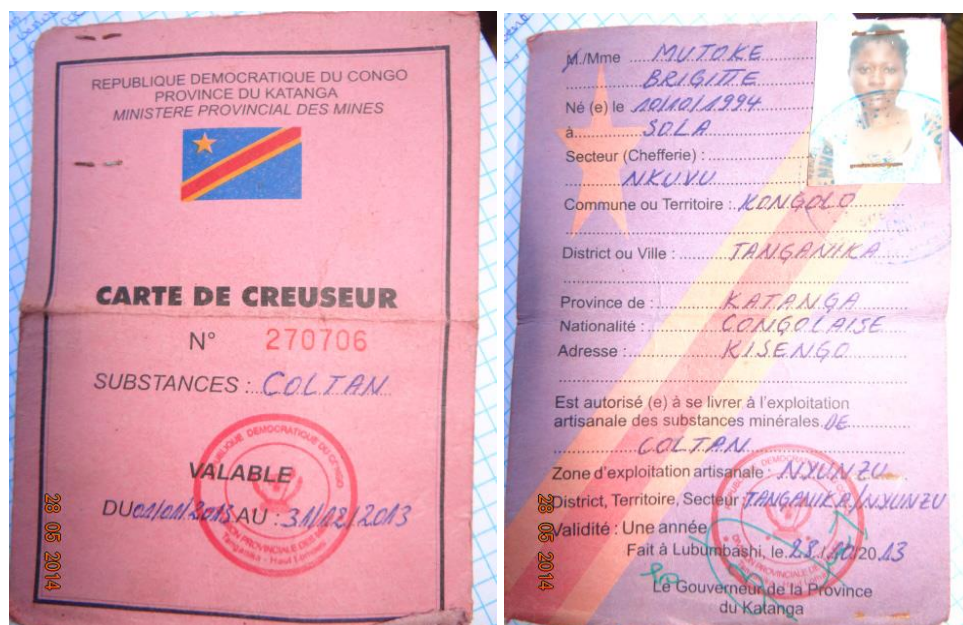 REPUBLIQUE DEMOCRATIQUE DU CONGO
PROVINCE DU KATANGA
MINISTERE PROVINCIAL DES MINES
CARTE DE CREUSEUR
N° 270706
SUBSTANCES : COLTAN
VALABLE
DU 01/01/2013 AU : 31/12/2013
REPUBLIQUE DEMOCRATIQUE DU CONGO
28 05 2014
M./Mme MUTOKE
BRIGITTE
Né (e) le 10/10/1994
à SOLA
Secteur (Chefferie) :
NKUVU
Commune ou Territoire : KONGOLO
District ou Ville : TANGANIKA
Province de : KATANGA
Nationalité : CONGOLAISE
Adresse : KISENGO
Est autorisé (e) à se livrer à l'exploitation
artisanale des substances minérales DE
COLTAN
Zone d'exploitation artisanale : NYUNZU
District, Territoire, Secteur TANGANIKA/NYUNZU
Validité : Une année
Fait à Lubumbashi, le 28/10/2013
Le Gouverneur de la Province
du Katanga
28 05 2014